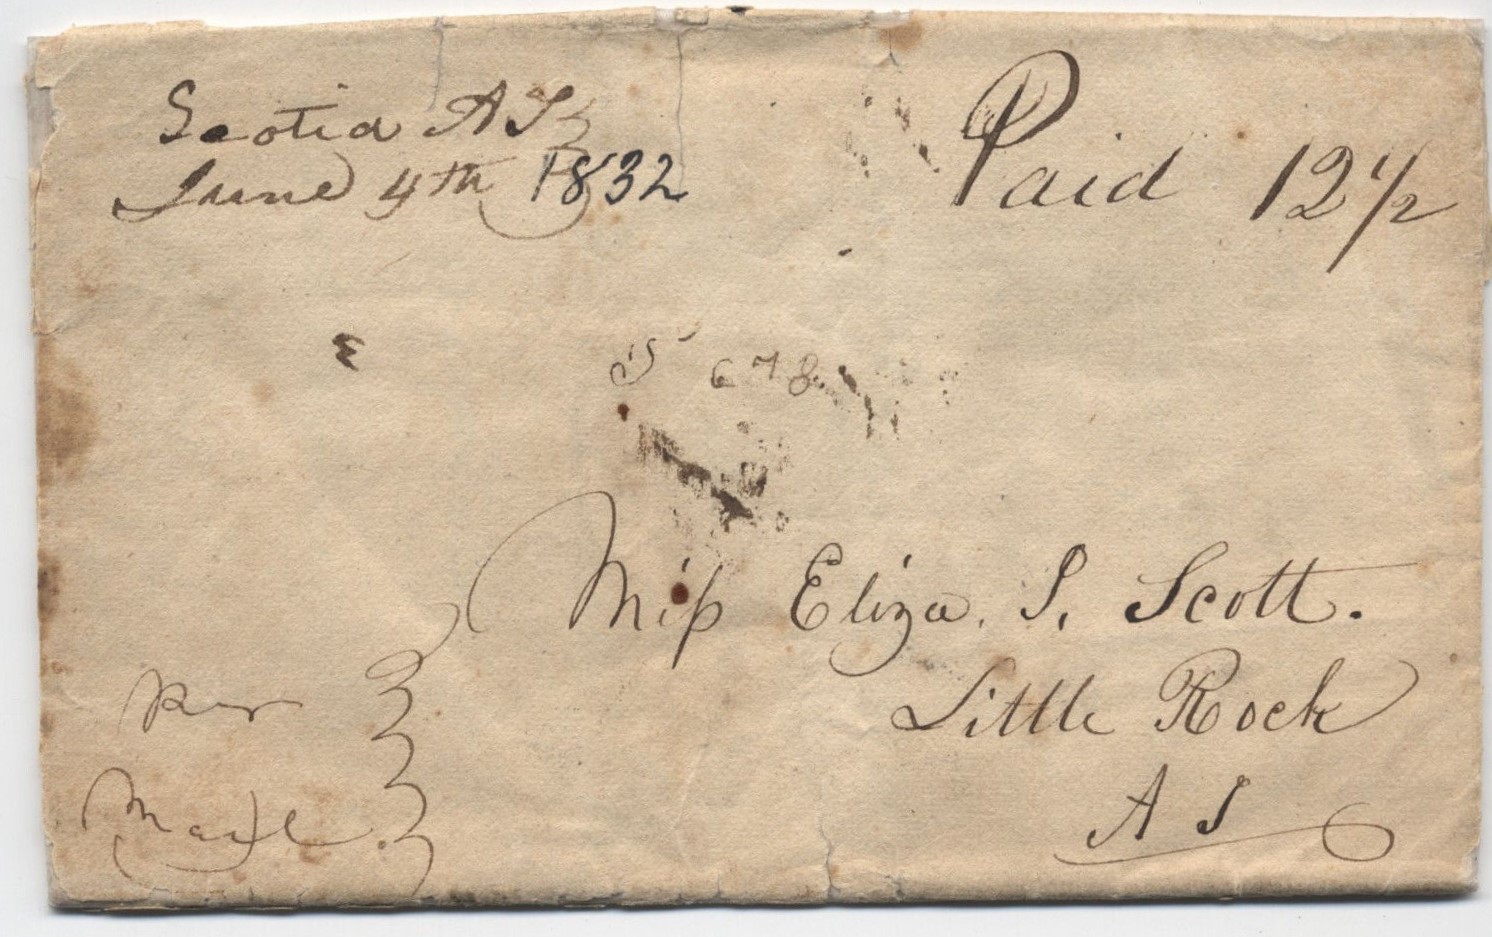 Scotia A T
June 4th 1832
Paid 12 1/2
5 6 7 8
Miſs Eliza. S. Scott.
Little Rock
A T
Per
Mail.